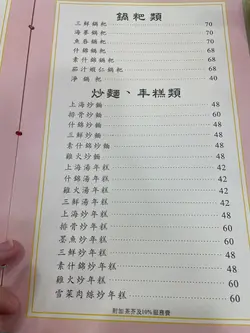 鍋粑類
三鮮鍋粑 70
海參鍋粑 70
魚香鍋粑 70
什錦鍋粑 68
素什錦鍋粑 68
茄汁蝦仁鍋粑 68
淨鍋粑 40
炒麵、年糕類
上海炒麵 48
排骨炒麵 60
什錦炒麵 48
三鮮炒麵 48
素什錦炒麵 48
雞火炒麵 48
上海湯年糕 42
什錦湯年糕 42
雞火湯年糕 42
三鮮湯年糕 42
上海炒年糕 48
排骨炒年糕 60
墨魚炒年糕 48
三鮮炒年糕 48
素什錦炒年糕 48
雞火炒年糕 60
雪菜肉絲炒年糕 60
附加茶芥及10%服務費